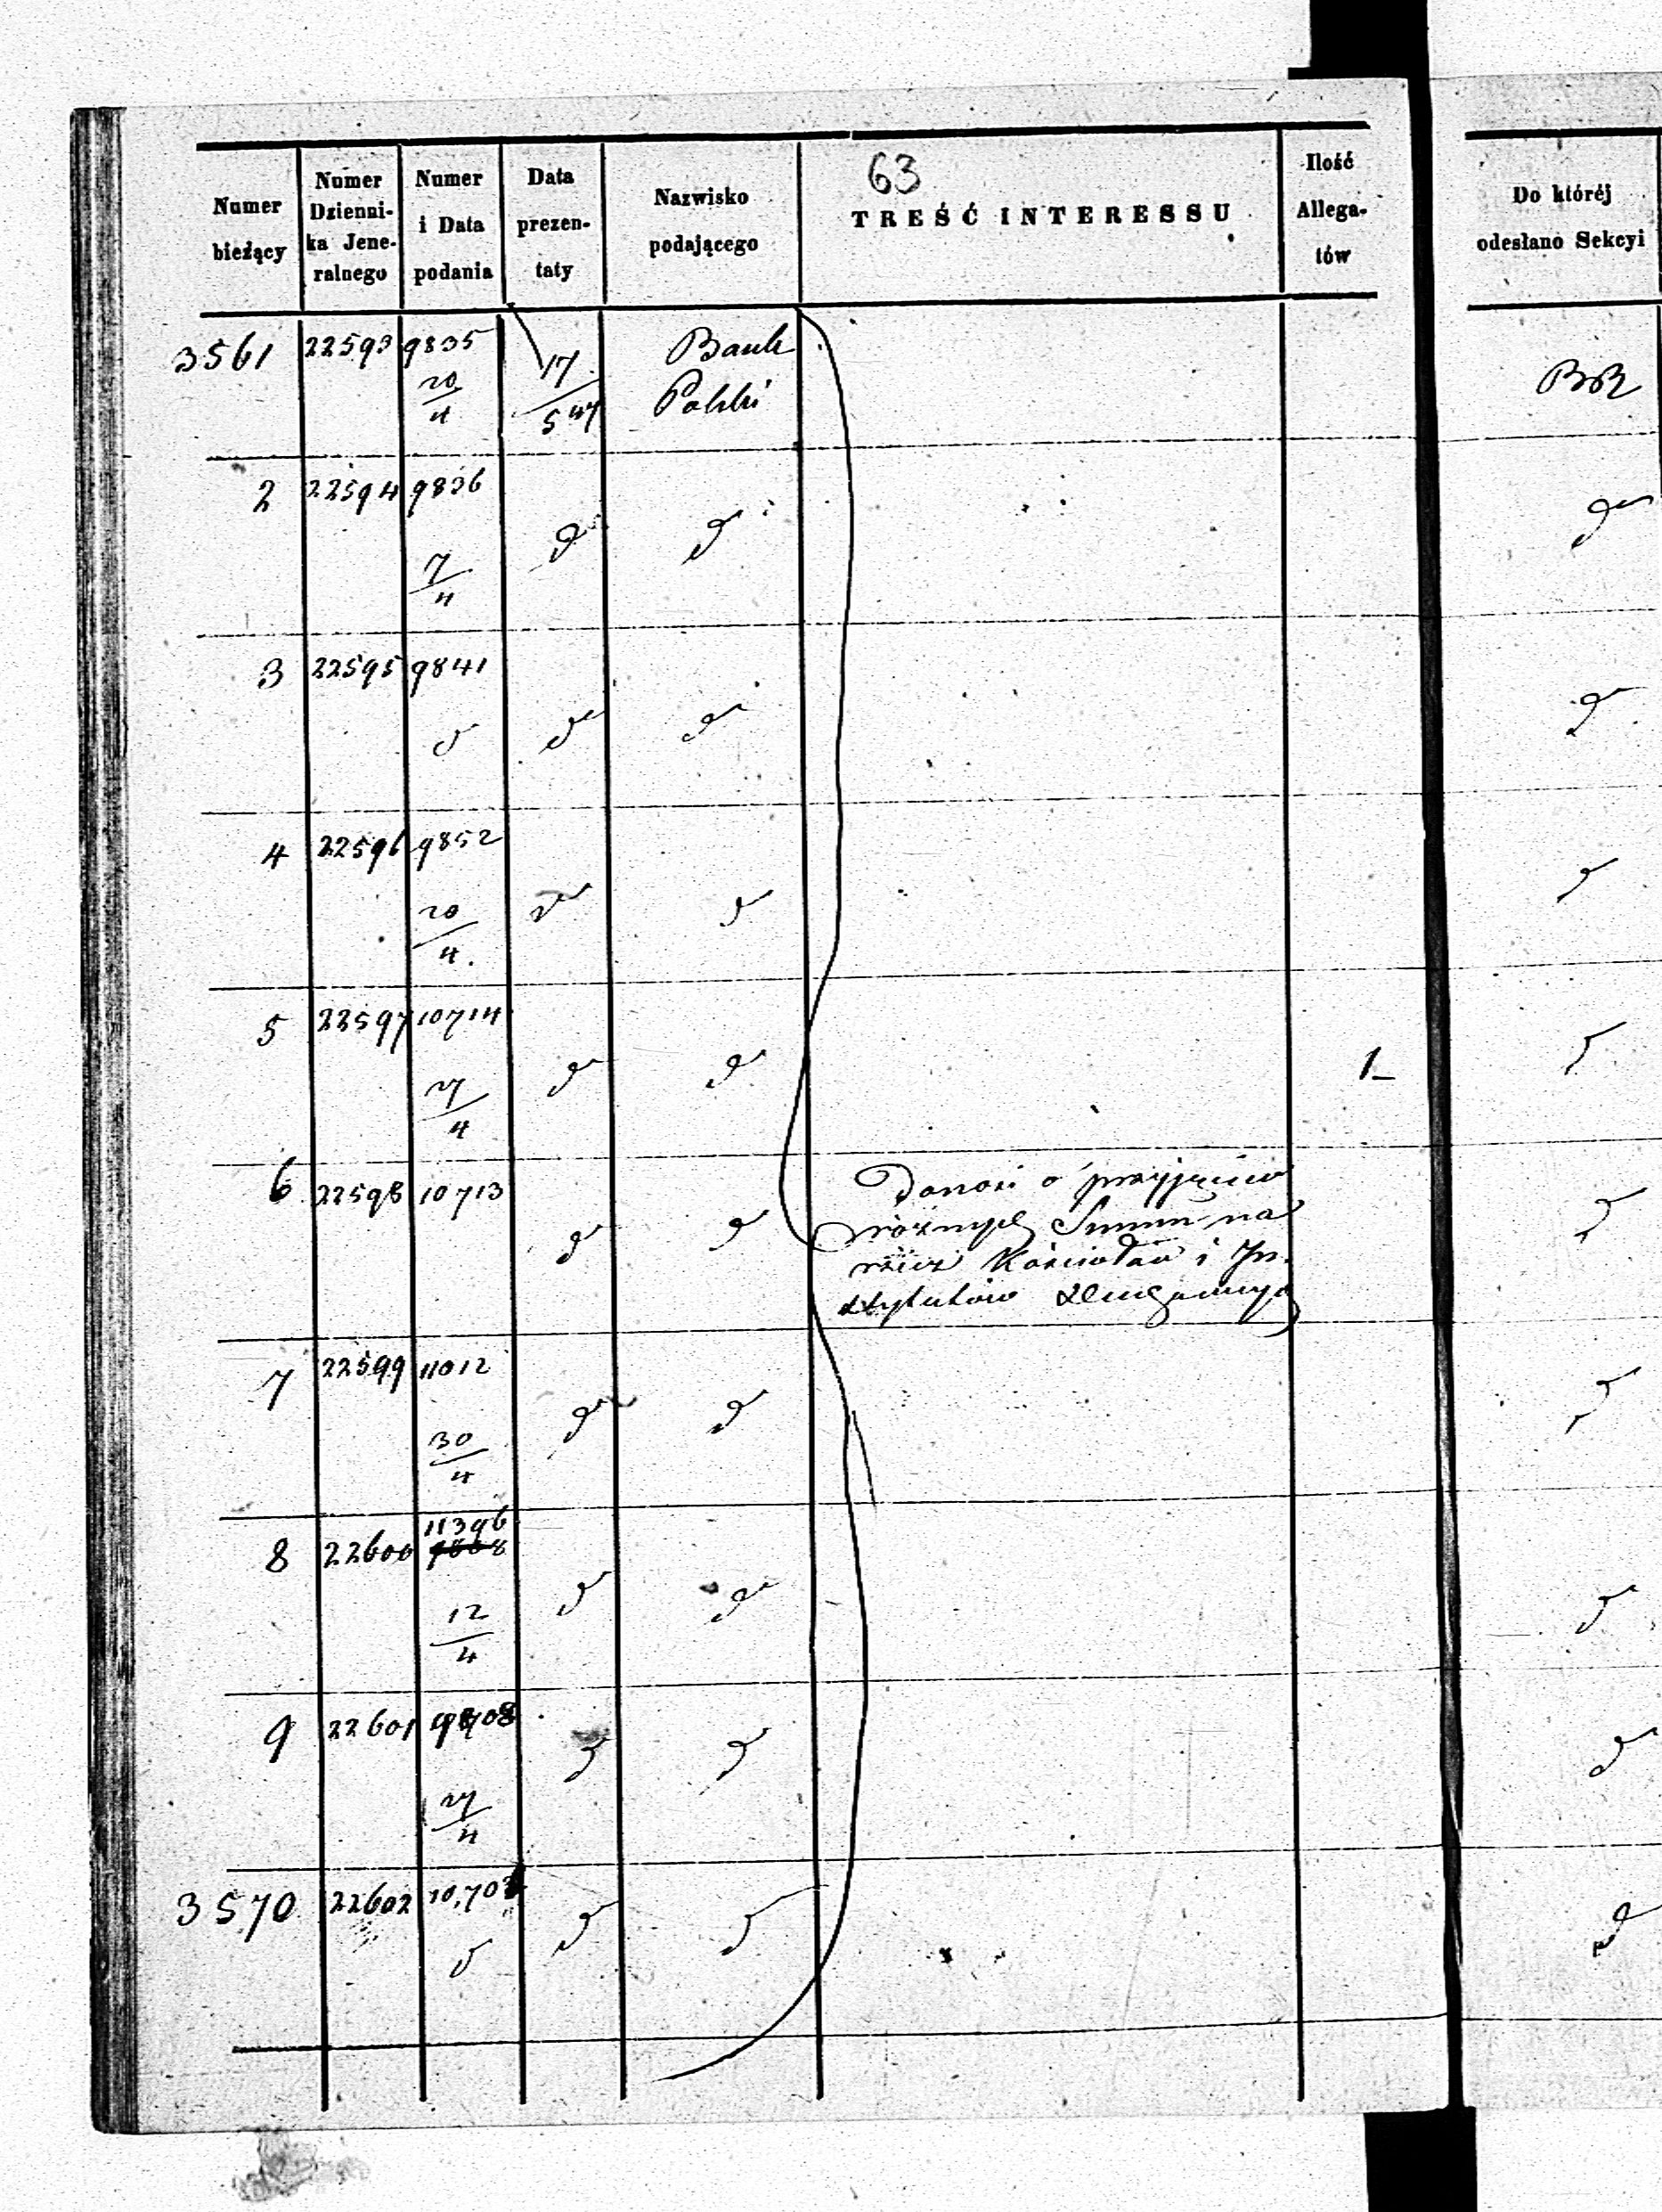 63
Numer bieżący
Numer Dzienni- ka Jene- ralnego
Numer i Data podania
Data prezen- taty
Nazwisko podającego
TREŚĆ INTERESSU
Ilość Allega- tów
Do któréj odesłano Sekcyi
3561 22593 9835 20/4 17/5 47 Bank Polski
2 22594 9836 7/4 d d d
3 22595 9841 d d d d
4 22596 9852 20/4. d d d
5 22597 10714 27/4 d d 1 d
6 22598 10713 d d d
Donosi o przyjęciu
różnych Summ na
rzecz Kościołów i In-
stytutów
7 22599 11012 30/4 d d d
8 22600 11396 12/4 d d d
9 22601 27/4 d d d
3570 22602 d d d d